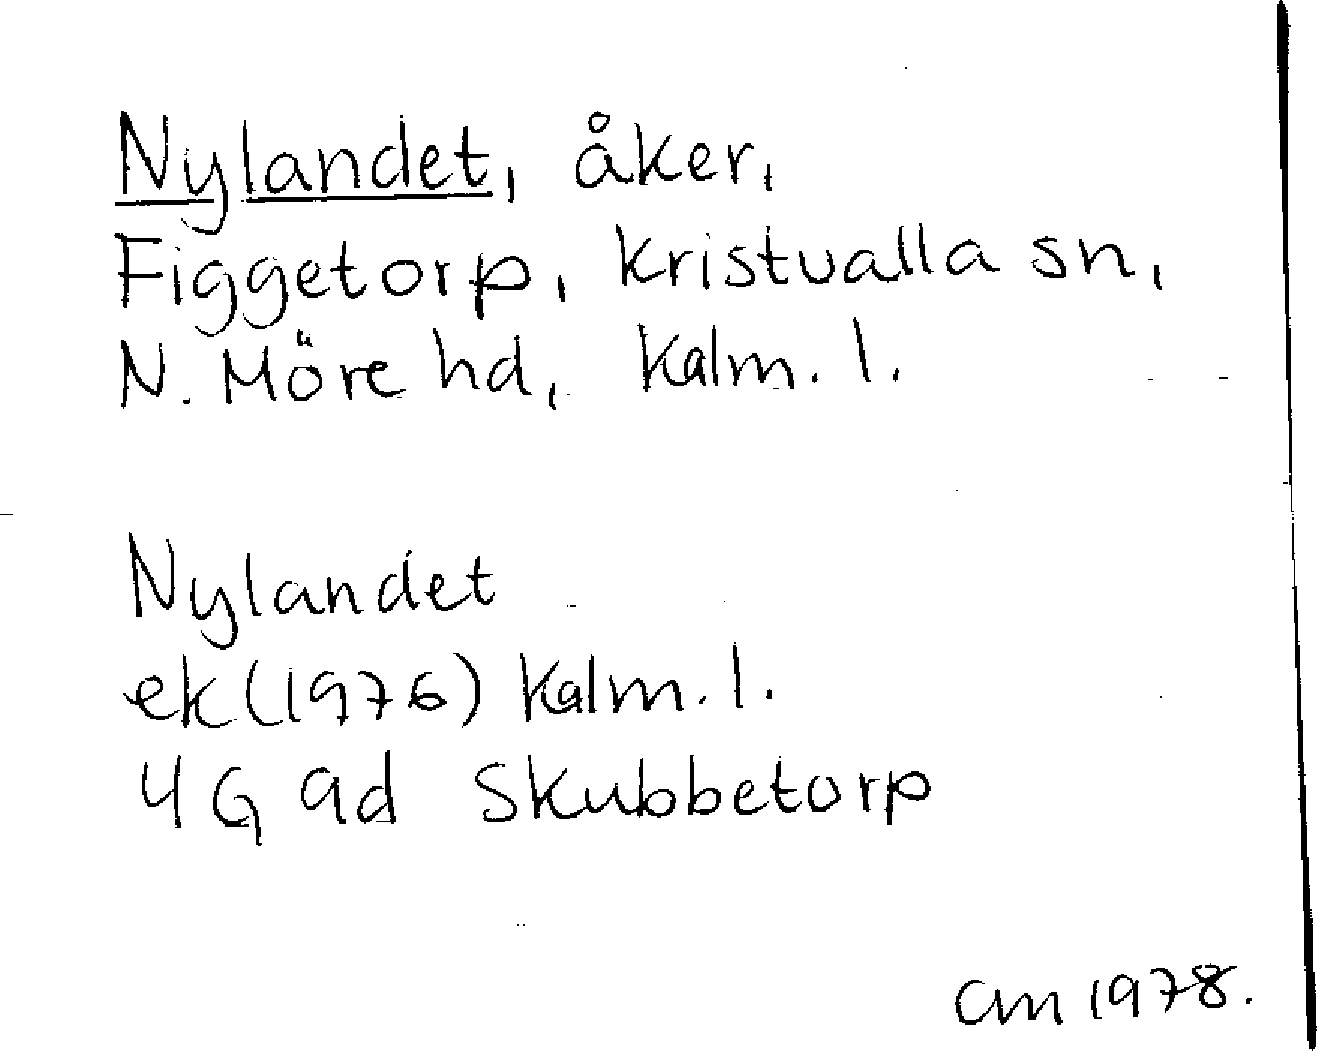 Nylandet, åker,
Figgetorp, Kristvalla sn,
N. Möre hd, Kalm. l.
Nylandet
ek (1976) Kalm. l.
4G 9d Skubbetorp
CM 1978.